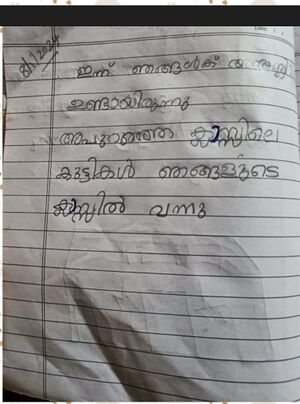 8/1/2024
ഇന്ന് ഞങ്ങൾക്ക്
ഉണ്ടായിരുന്നു
അപ്പുറത്തെ ക്ലാസ്സിലെ
കുട്ടികൾ ഞങ്ങളുടെ
ക്ലാസ്സിൽ വന്നു